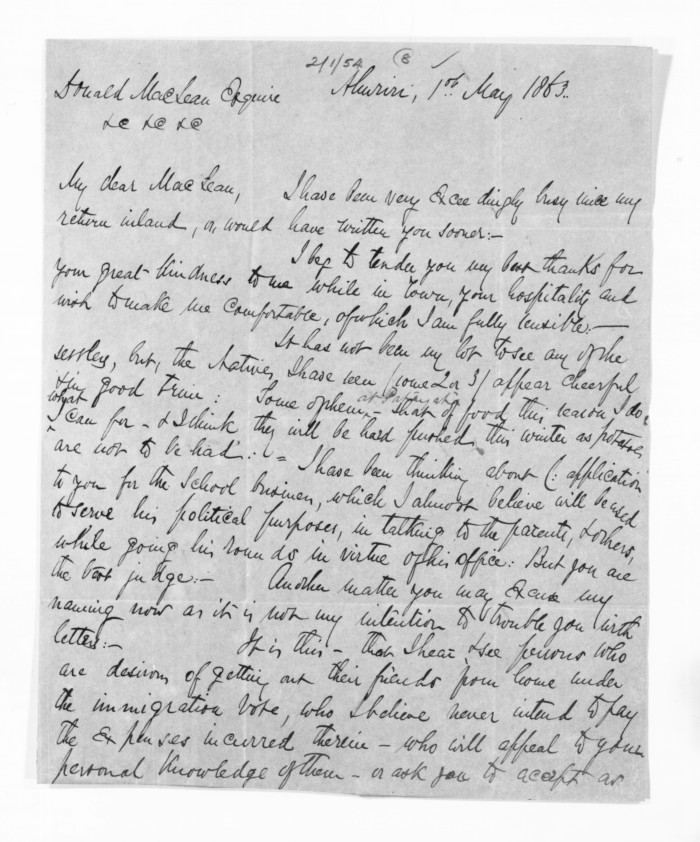 2/1/54 (8)
Donald MacLean Esquire Ahuriri, 1st May 1863.
&c &c &c
My dear MacLean, I have been very exceedingly busy since my
return inland, or would have written you sooner:-
I beg to tender you my best thanks for
your great kindness to me while in town, your hospitality and
wish to make me comfortable, of which I am fully sensible:-
It has not been my lot to see any of the
settlers, but, the Natives, I have seen (some 2 or 3) appear cheerful
& in good trim: Some of them, at - that of food this season I do
what I can for - & I think they will be hard pushed this winter as potatoes
are not to be had:. = I have been thinking about (: application
to you for the School business, which I almost believe will be used
to serve his political purposes, in talking to the parents, & others,
while going his rounds in virtue of his office: But you are
the best judge:- Another matter you may excuse my
naming now as it is not my intention to trouble you with
letters:- It is this - that I hear & see persons who
are desirous of getting out their friends from home under
the immigration vote, who I believe never intend to pay
the expenses incurred therein - who will appeal to your
personal knowledge of them - or ask you to accept as